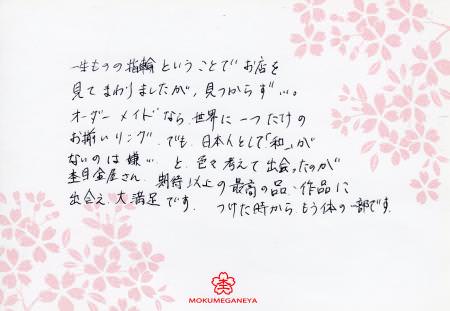 一生ものの指輪ということでお店を
見てまわりましたが、見つからず…。
オーダーメイドなら、世界に一つだけの
お揃いリング、でも、日本人として「和」が
ないのは嫌… と、色々考えて出会ったのが
杢目金屋さん。期待以上の最高の品、作品に
出会え、大満足です。 つけた時から、もう体の一部です。
MOKUMEGANEYA